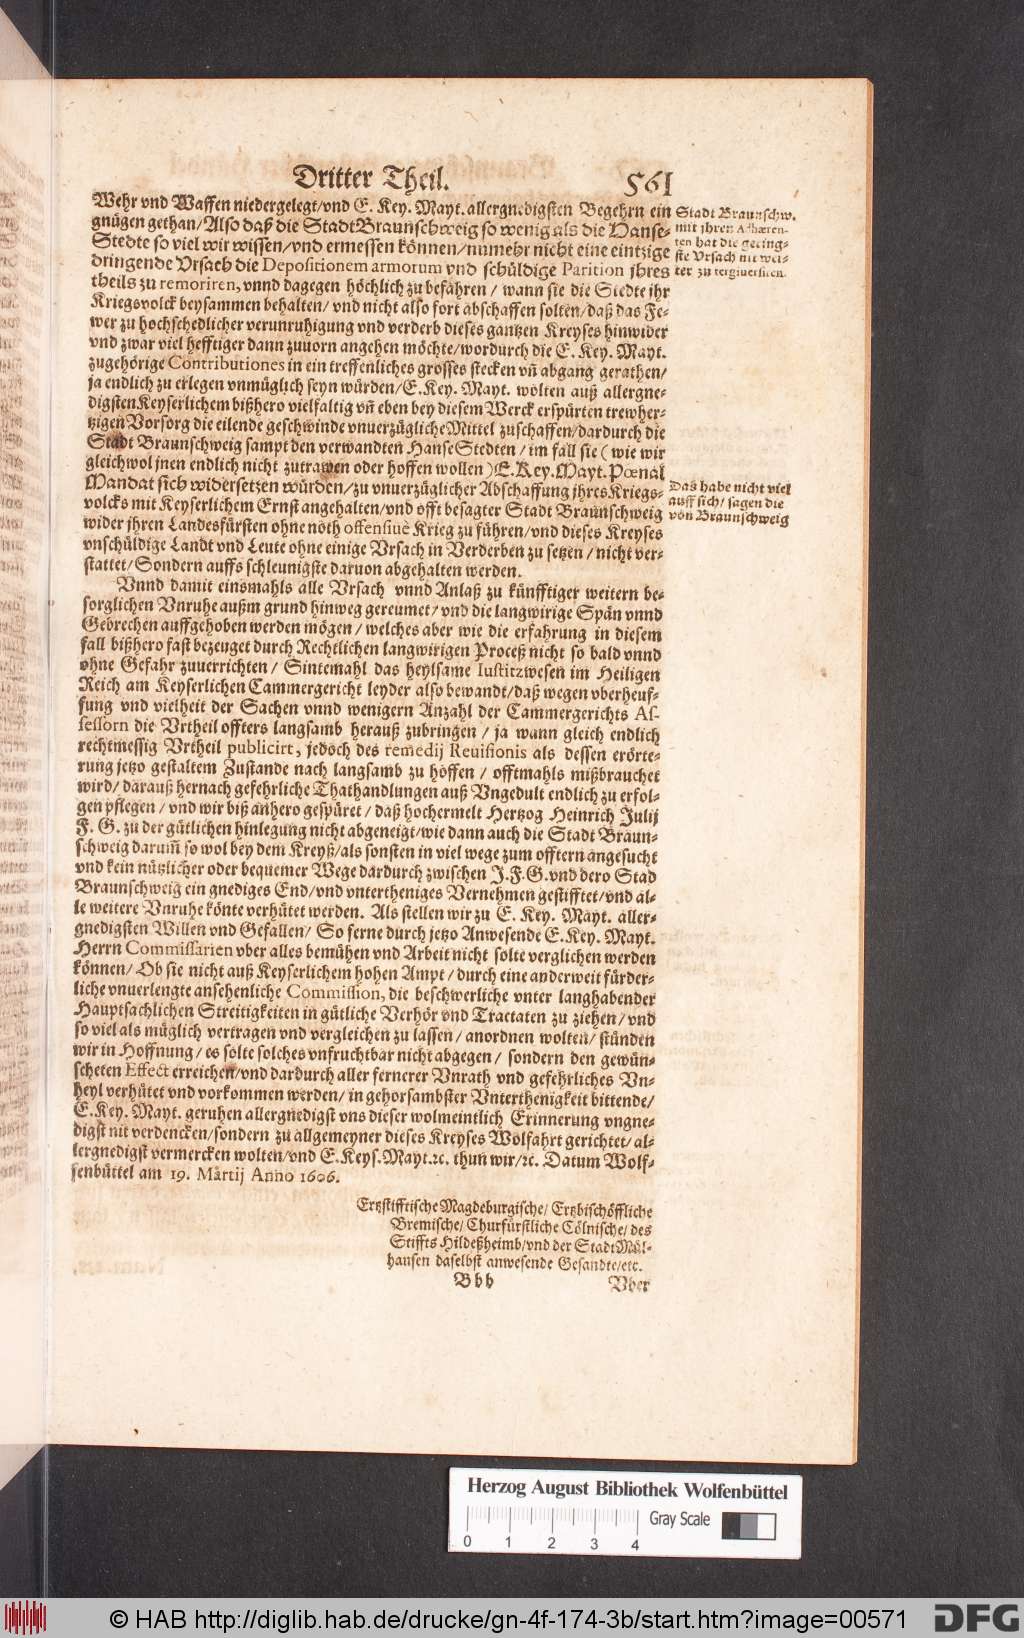 Dritter Theil. 561
Wehr vnd Waffen niedergelegt/vnd E. Key. Mayt. allergnedigsten Begehrn ein
gnügen gethan/Also daß die Stadt Braunschweig so wenig als die Hanse-
Stedte so viel wir wissen/vnd ermessen können/nunmehr nicht eine eintzige
dringende Vrsach die Depositionem armorum vnd schüldige Parition jhres
theils zu remoriren, vnnd dagegen höchlich zu befahren/ wann sie die Stedte ihr
Kriegsvolck beysammen behalten/ vnd nicht also fort abschaffen solten/daß das Fe-
wer zu hochschedlicher verunruhigung vnd verderb dieses gantzen Kreyses hinwider
vnd zwar viel hefftiger dann zuuorn angehen möchte/wordurch die E. Key. Mayt.
zugehörige Contributiones in ein treffenliches grosses stecken vñ abgang gerathen/
ja endlich zu erlegen vnmüglich seyn würden/E. Key. Mayt. wolten auß allergne-
digsten Keyserlichem bißhero vielfaltig vñ eben bey diesem Werck erspürten trewher-
tzigen Vorsorg die eilende geschwinde vnuerzügliche Mittel zuschaffen/dardurch die
Stadt Braunschweig sampt den verwandten Hanse Stedten/ im fall sie ( wie wir
gleichwol jnen endlich nicht zutrawen oder hoffen wollen ) E. Key. Mayt. Pœnal
Mandat sich widersetzen würden/zu vnuerzüglicher Abschaffung jhres Kriegs-
volcks mit Keyserlichem Ernst angehalten/vnd offt besagter Stadt Braunschweig
wider jhren Landesfürsten ohne noth offensiuè Krieg zu führen/vnd dieses Kreyses
vnschüldige Landt vnd Leute ohne einige Vrsach in Verderben zu setzen/ nicht ver-
stattet/Sondern auffs schleunigste daruon abgehalten werden.
Vnnd damit einsmahls alle Vrsach vnnd Anlaß zu künfftiger weitern be-
sorglichen Vnruhe außm grund hinweg gereumet/ vnd die langwirige Spän vnnd
Gebrechen auffgehoben werden mögen/ welches aber wie die erfahrung in diesem
fall bißhero fast bezeuget durch Rechtlichen langwirigen Proceß nicht so bald vnnd
ohne Gefahr zuuerrichten/ Sintemahl das heylsame Iustitzwesen im Heiligen
Reich am Keyserlichen Cammergericht leyder also bewandt/daß wegen vberheuf-
fung vnd vielheit der Sachen vnnd wenigern Anzahl der Cammergerichts As-
sessorn die Vrtheil offters langsamb herauß zubringen/ ja wann gleich endlich
rechtmessig Vrtheil publicirt, jedoch des remedij Reuisionis als dessen erörte-
rung jetzo gestaltem Zustande nach langsamb zu hoffen/ offtmahls mißbrauchet
wird/ darauß hernach gefehrliche Thathandlungen auß Vngedult endlich zu erfol-
gen pflegen/ vnd wir biß anhero gespüret/ daß hochermelt Hertzog Heinrich Julij
F. G. zu der gütlichen hinlegung nicht abgeneigt/wie dann auch die Stadt Braun-
schweig darumm̃ so wol bey dem Kreyß/als sonsten in viel wege zum offtern angesucht
vnd kein nützlicher oder bequemer Wege dardurch zwischen J. F. G. vnd dero Stad
Braunschweig ein gnediges End/vnd vntertheniges Vernehmen gestifftet/vnd al-
le weitere Vnruhe könte verhütet werden. Als stellen wir zu E. Key. Mayt. aller-
gnedigsten Willen vnd Gefallen/ So ferne durch jetzo Anwesende E. Key. Mayt.
Herrn Commissarien vber alles bemühen vnd Arbeit nicht solte verglichen werden
können/ Ob sie nicht auß Keyserlichem hohen Ampt/ durch eine anderweit fürder-
liche vnuerlengte ansehenliche Commission, die beschwerliche vnter langhabender
Hauptsachlichen Streitigkeiten in gütliche Verhör vnd Tractaten zu ziehen/ vnd
so viel als müglich vertragen vnd vergleichen zu lassen/ anordnen wolten/ stünden
wir in Hoffnung/ es solte solches vnfruchtbar nicht abgegen/ sondern den gewün-
scheten Effect erreichen/vnd dardurch aller fernerer Vnrath vnd gefehrliches Vn-
heyl verhütet vnd vorkommen werden/ in gehorsambster Vnterthenigkeit bittende/
E. Key. Mayt. geruhen allergnedigst vns dieser wolmeintlich Erinnerung vngne-
digst nit verdencken/sondern zu allgemeyner dieses Kreyses Wolfahrt gerichtet/ al-
lergnedigst vermercken wolten/vnd E. Keys. Mayt. ꝛc. thun wir/ꝛc. Datum Wolf-
fenbüttel am 19. Martij Anno 1606.
Stadt Braunschw.
mit jhren Adhæren-
ten hat die gering-
ste Vrsach nit wei-
ter zu tergiuersirn.
Das habe nicht viel
auff sich/ sagen die
von Braunschweig
Ertzstifftische Magdeburgische/ Ertzbischöffliche
Bremische/ Churfürstliche Cölnische/ des
Stiffts Hildeßheimb/vnd der Stadt Mül-
hausen daselbst anwesende Gesandte/etc.
Bbb Vber
Herzog August Bibliothek Wolfenbüttel
Gray Scale
0 1 2 3 4
© HAB http://diglib.hab.de/drucke/gn-4f-174-3b/start.htm?image=00571 DFG